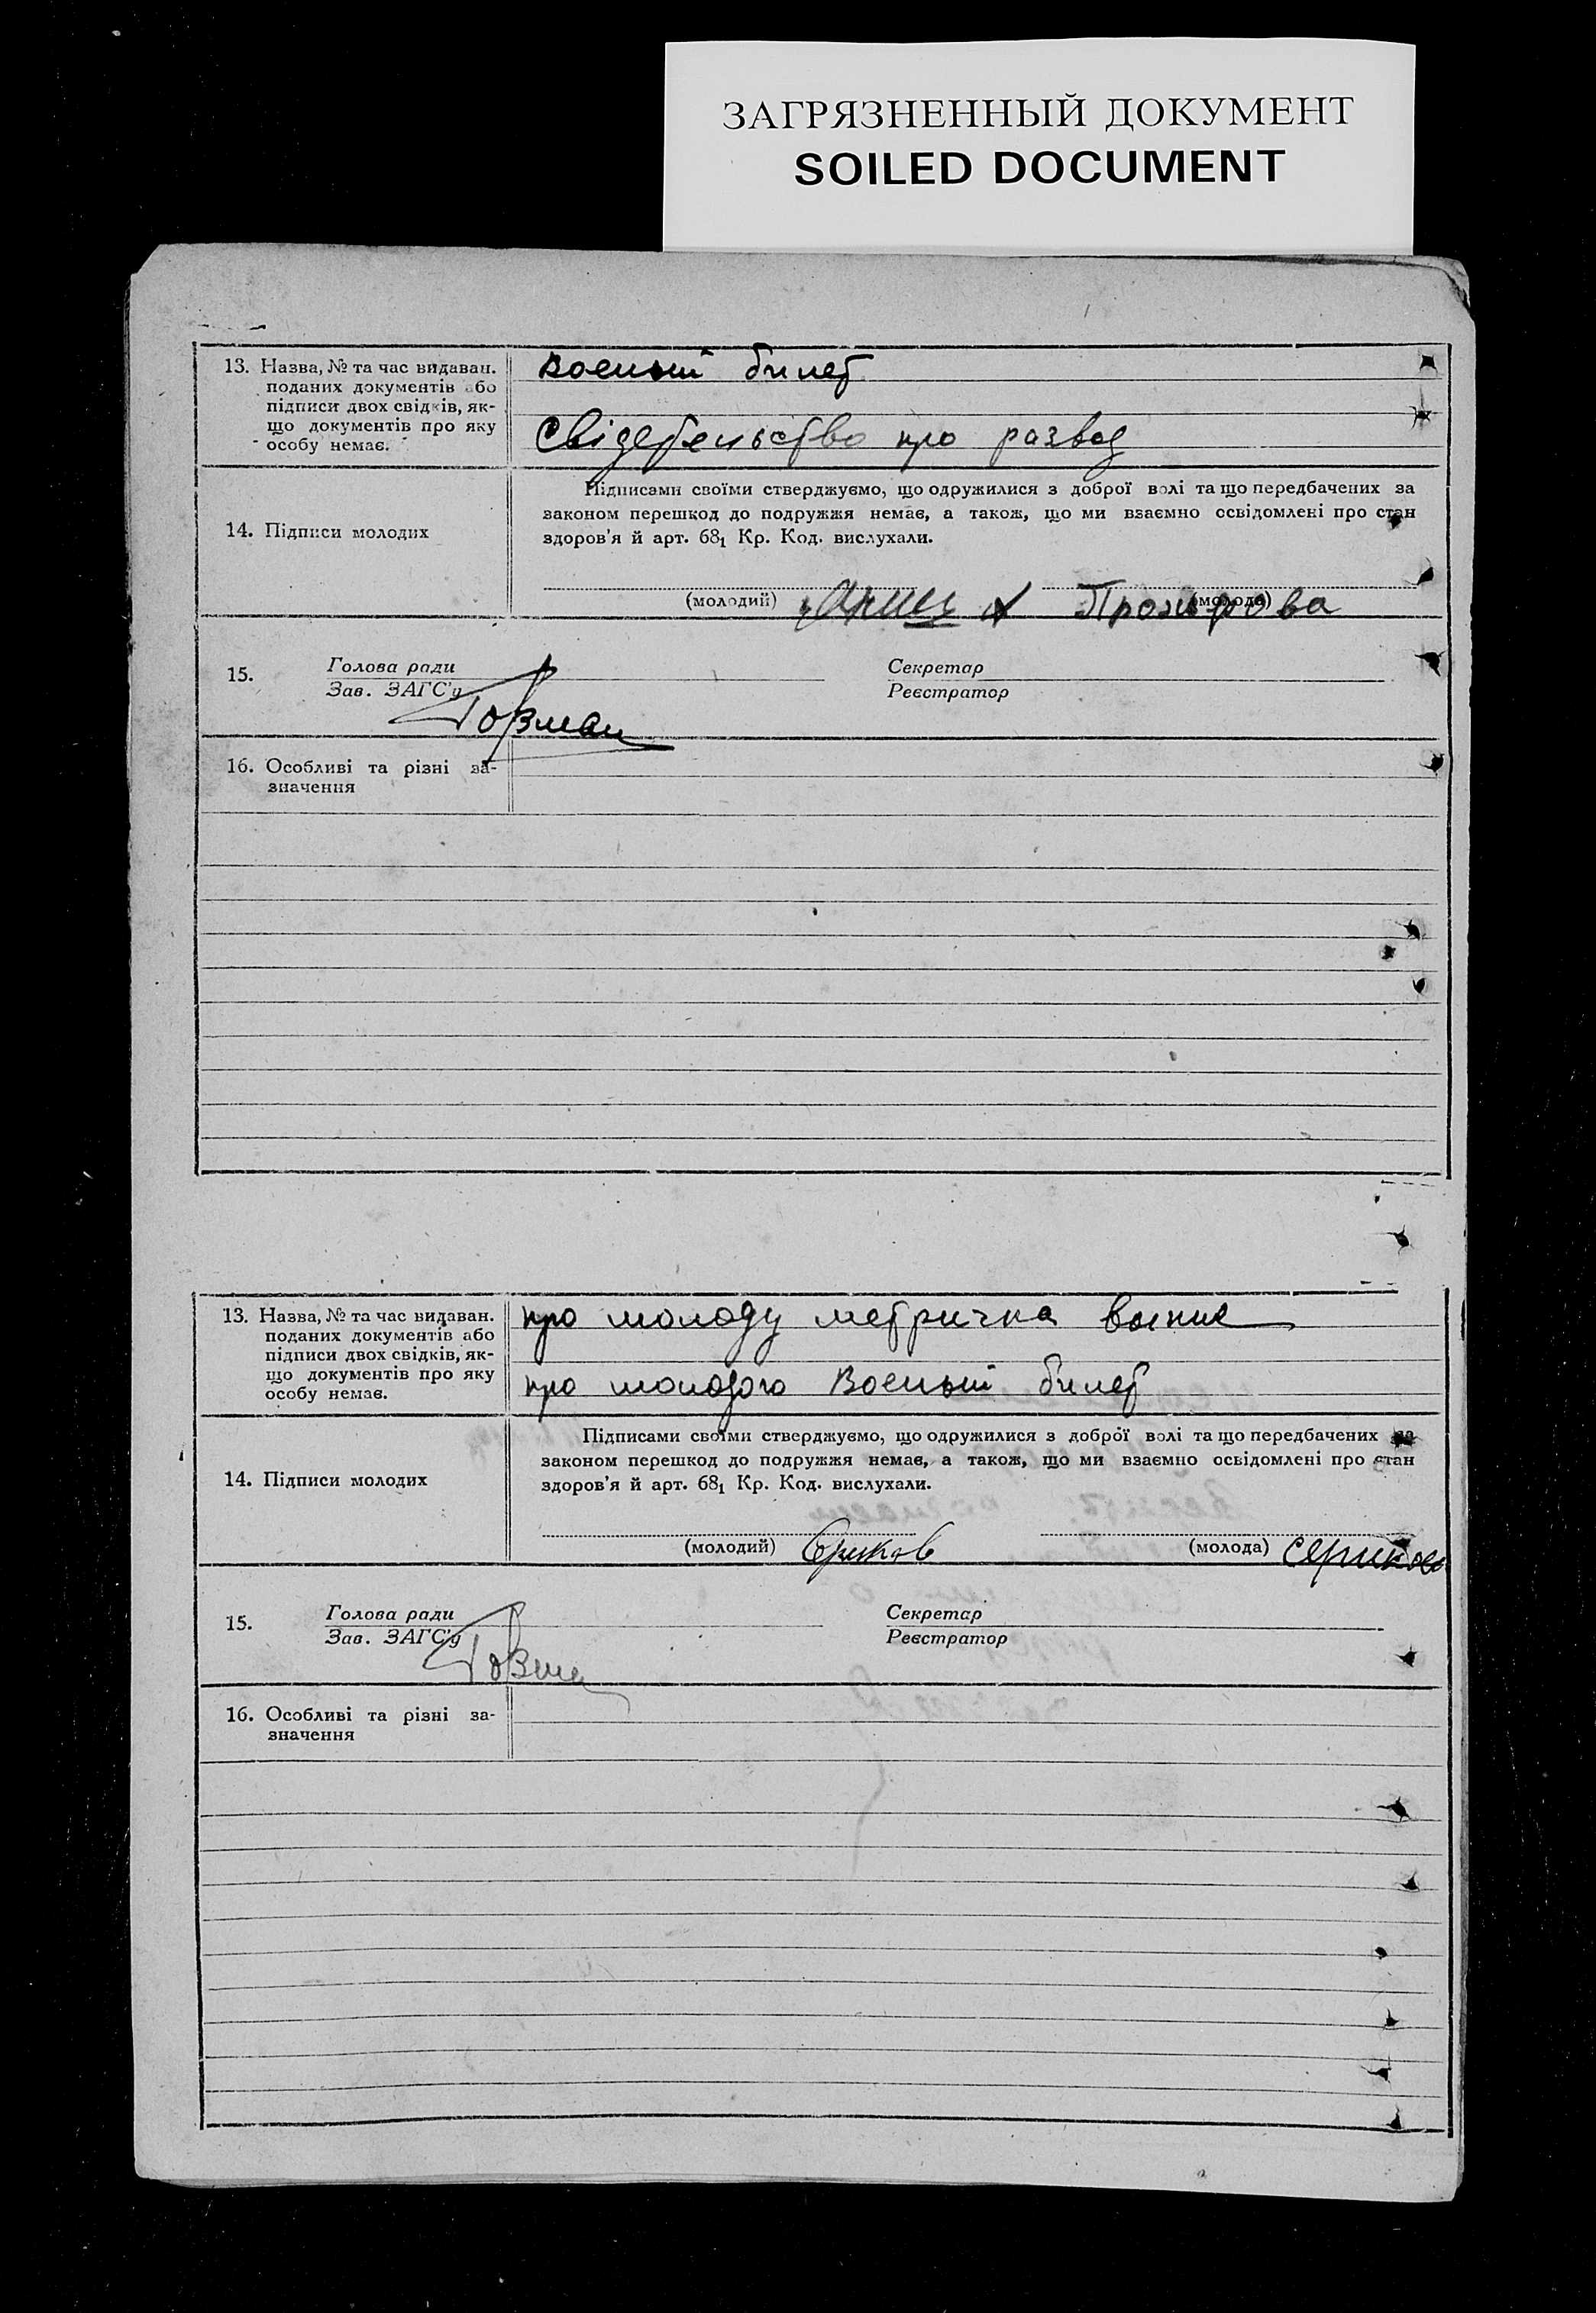 ЗАГРЯЗНЕННЫЙ ДОКУМЕНТ
SOILED DOCUMENT
13. Назва, № та час видаван.
поданих документів або
підписи двох свідків, як-
що документів про яку
особу немає.
Военый билет
Свідетельство про развод
14. Підписи молодих
Підписами своїми стверджуємо, що одружилися з доброї волі та що передбачених за
законом перешкод до подружжя немає, а також, що ми взаємно освідомлені про стан
здоров'я й арт. 68₁ Кр. Код. вислухали.
(молодий)
(молода)
15.
Голова ради
Зав. ЗАГС'у
Секретар
Реєстратор
16. Особливі та різні за-
значення
13. Назва, № та час видаван.
поданих документів або
підписи двох свідків, як-
що документів про яку
особу немає.
про молоду метричка
про молодого Военый билет
14. Підписи молодих
Підписами своїми стверджуємо, що одружилися з доброї волі та що передбачених за
законом перешкод до подружжя немає, а також, що ми взаємно освідомлені про стан
здоров'я й арт. 68₁ Кр. Код. вислухали.
(молодий)
(молода)
15.
Голова ради
Зав. ЗАГС'у
Секретар
Реєстратор
16. Особливі та різні за-
значення